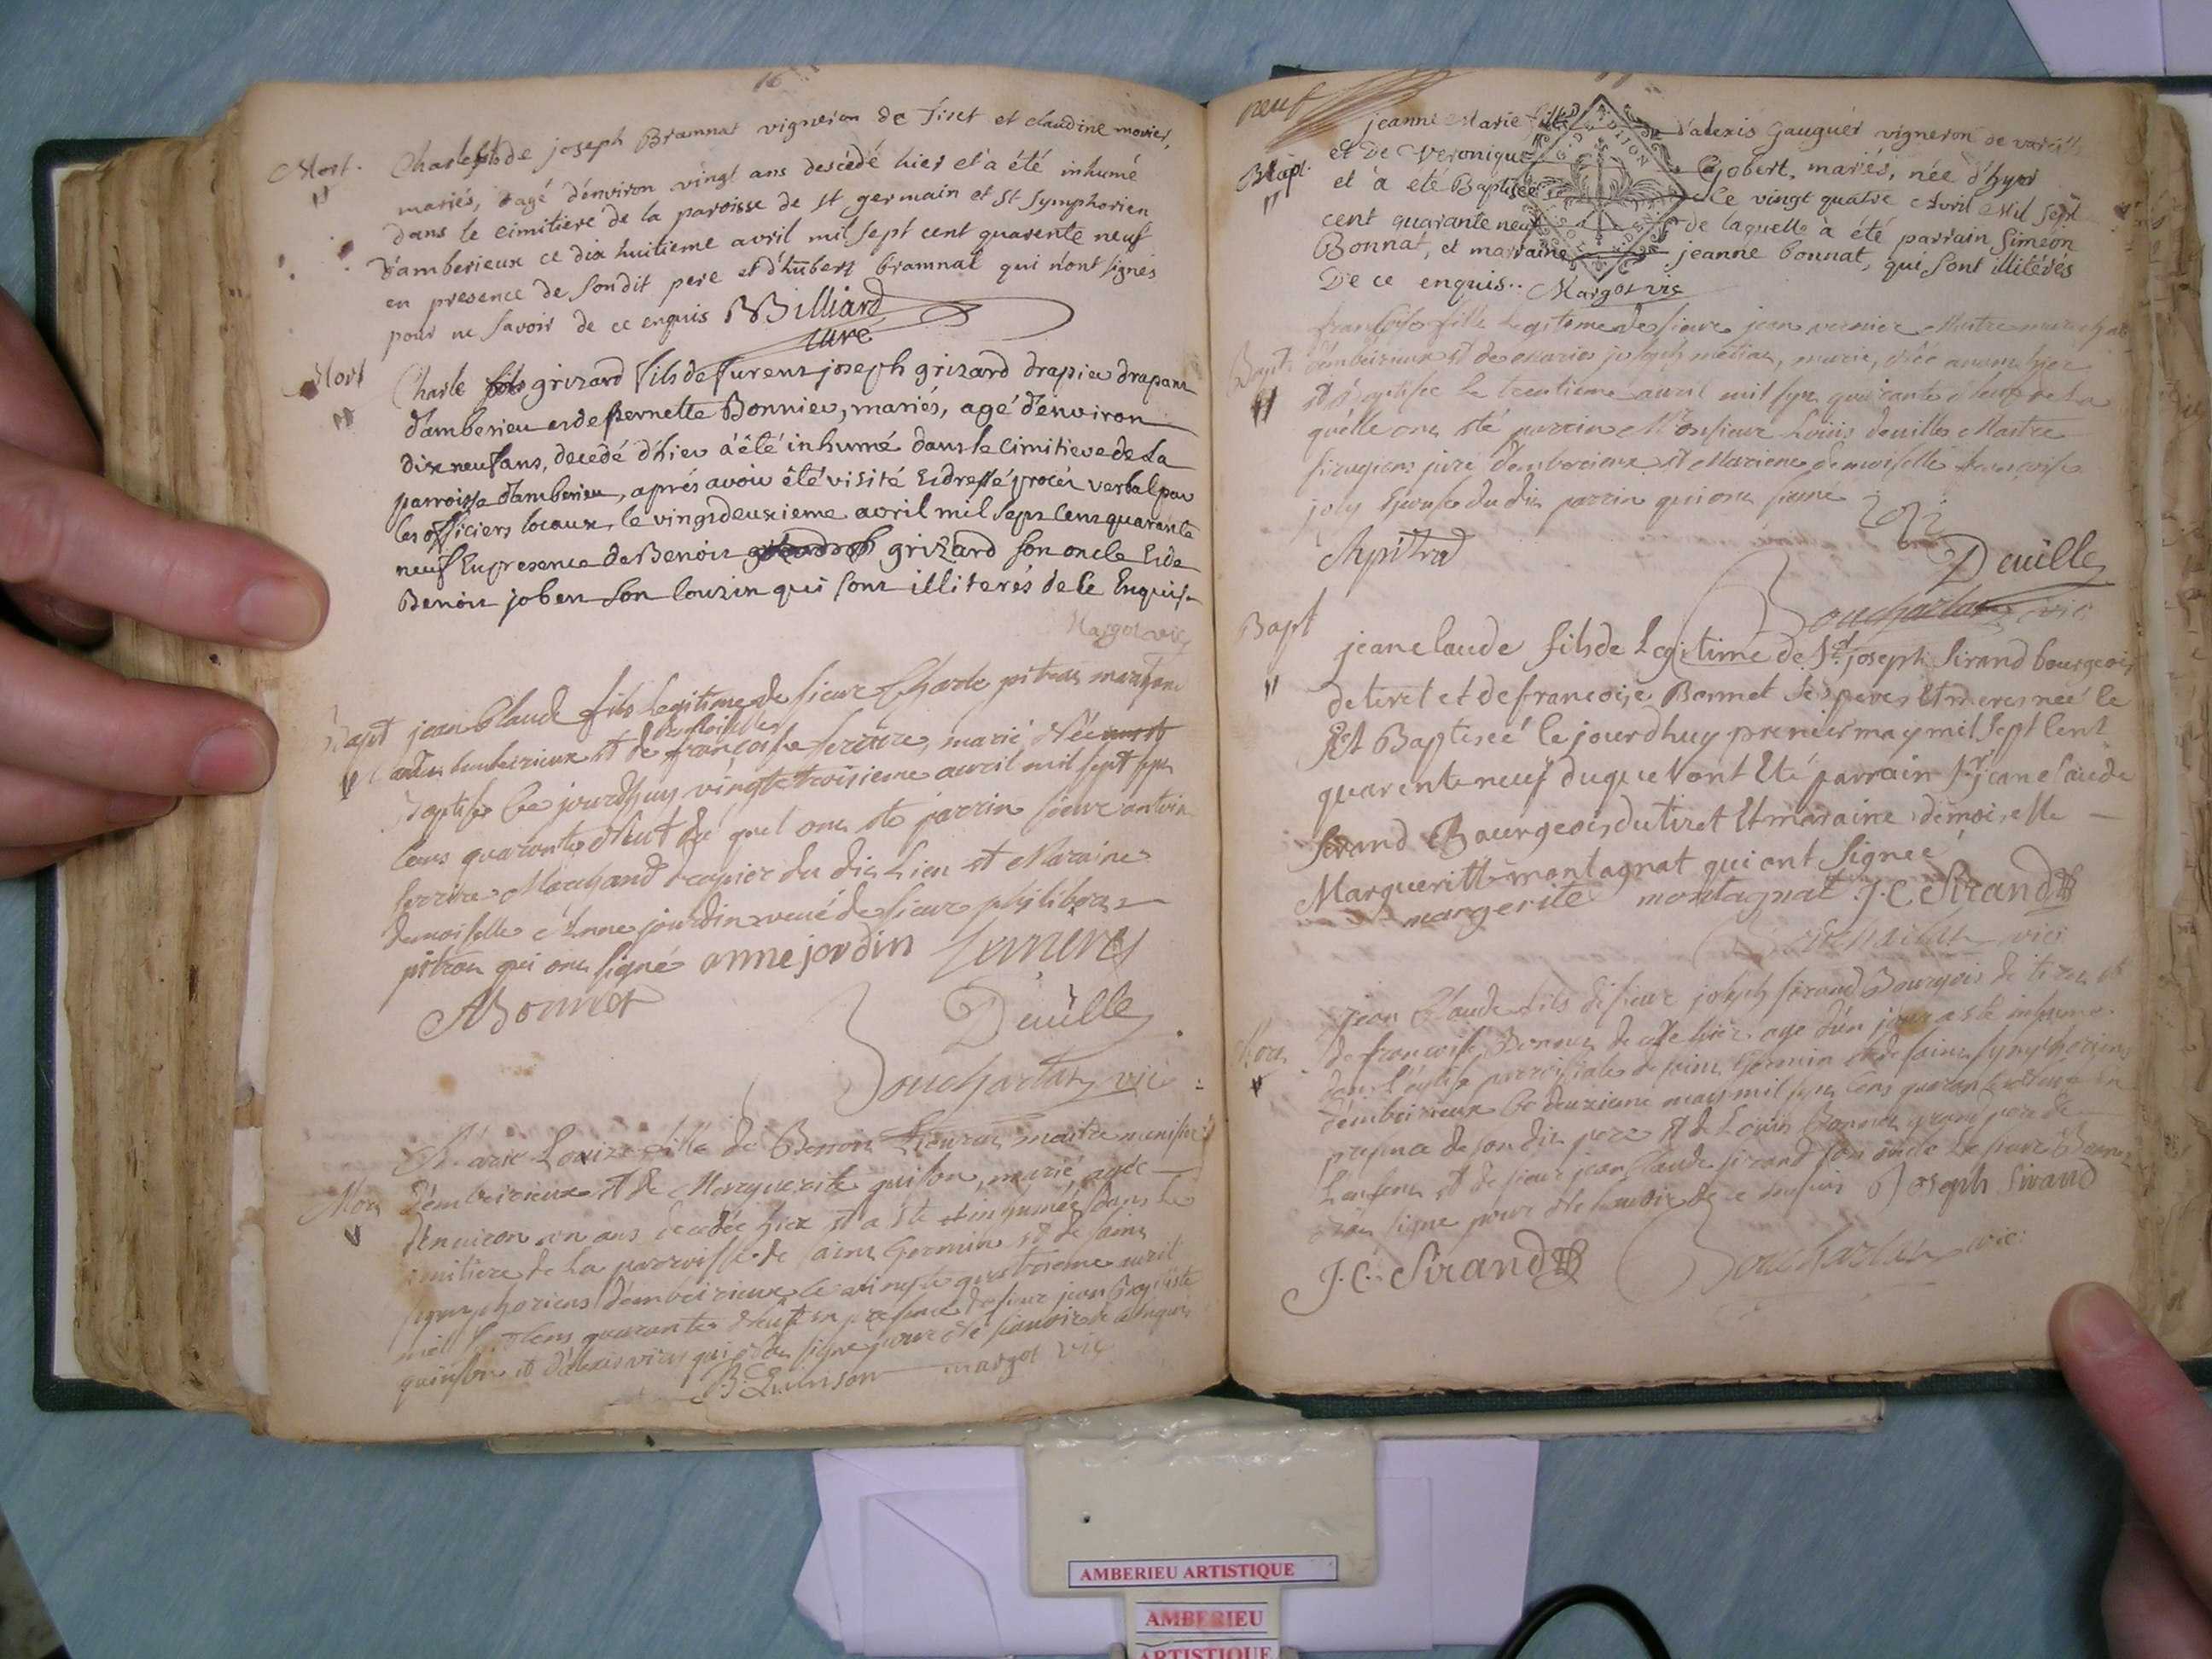 16
Mort.
Charle fils de joseph Bramnat vigneron de Tiret et claudine moviez,
mariés, agé d'environ vingt ans descédé hier et a été inhumé
dans le cimitiere de la paroisse de st germain et st symphorien
d'amberieux ce dix huitieme avril mil sept cent quarente neuf
en presence de sondit pere et d'hubert bramnat qui n'ont signés
pour ne savoir de ce enquis Billiard
curé
Mort
Charle grizard fils de furent joseph grizard drapier drapant
d'amberieu et de Pernette Bonnier, mariés, agé d'environ
dix neuf ans, decedé d'hier a été inhumé dans le cimitiere de La
parroisse d'amberieu, aprés avoir été visité Et dressé procés verbal par
les officiers locaux, le vingt deuxieme avril mil sept Cent quarante
neuf En presence de Benoit grizard son oncle Et de
Benoit jobert son Couzin qui sont illiterés de Ce Enquis
Margot vic
Bapt
jean Claude fils legitime de sieur Charle pitrat marchand
demoiselle
d'ambeirieux et de françoise ferriere, marié, Née
Baptise Ce jourdhuy vingt troisieme avril mil sept
Cens quarante Neuf du quel ont été parrin sieur antoin
ferriere Marchand drapier du dit Lieu et Maraine
demoiselle Anne jourdin veuve de sieur philibert
pitrat qui ont signé anne jordin
ABonnet
Deville
Boucharlat vic
Mort
Marie Louize fille de Benoit maitre menisier
d'embeirieux et de Marguerite quinson, marié, agée
d'environ un ans decedée hier et a été inhumée dans Le
cimitiere de La parroisse de saint Germin et de saint
symphoriens d'embeirieux le vingte quatrieme avril
mil sept Cens quarante Neuf en presence de sieur jean Baptiste
quinson et d'alexis qui n'ont signé pour Ne scavoir de ce enquis
B. Quinson margot vic
neuf
Bapt.
jeanne Marie fille d'alexis Gauguér vigneron de vareille
et De Veronique Gobert, mariés, née d'hyer
et a été Baptisée Ce vingt quatre Avril Mil sept
cent quarante neuf de laquelle à été parrain Simeon
Bonnat, et marraine jeanne bonnat, qui sont illitérés
De ce enquis.. Margot vic
Bapt
françoise fille Legitime de sieur jean vernier Maitre marechal
d'embeirieux et de Marie joseph métias, marié, Née
et Baptisée le trentieme avril mil sept quarante Neuf de La
quelle ont été parrin Monsieur Louis deville Maitre
sirugiens juré d'embeirieux et Mariene demoiselle françoise
joly Epouse du dit parrin qui ont signé
Apitrat
Deville
Boucharlat vic
Bapt
jean claude fils de Legitime de Sr joseph Sirand bourgeois
de tiret et de francoise Bonnet ses peres Et meres neé le
Et Baptiseé le jourdhuy premier may mil sept Cent
quarente neuf duquel ont Eté parrain Sr jean claude
Sirand Bourgeois du tiret Et maraine demoiselle
Margueritte montagnat qui ont signeé
margerite montagnat J. C. Sirand
Boucharlat vic
Mort
jean Claude fils de sieur joseph sirand Bourgois de tiret et
de francoise Bonnet decede hier age d'un jour a été inhumé
dans l'église parroisiale de saint Germin et de saint symphoriens
d'embeirieux Ce deuxieme may mil sept Cens quarante Neuf en
presence de son dit pere et de Louis Bonnet grand pere de
L'enfent et de sieur jean Claude sirand son oncle Le sieur Bonnet
n'a signé pour Ne scavoir de ce enquis Joseph Sirand
J. C. Sirand Boucharlat vic
AMBERIEU ARTISTIQUE
AMBERIEU
ARTISTIQUE